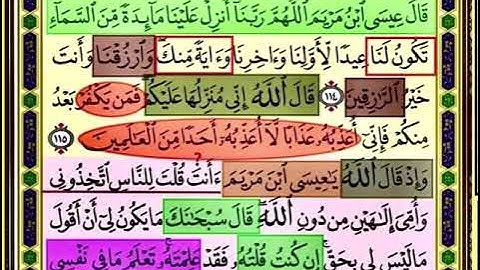 قَالَ عِيسَى ٱبْنُ مَرْيَمَ ٱللَّهُمَّ رَبَّنَآ أَنزِلْ عَلَيْنَا مَآئِدَةً مِّنَ ٱلسَّمَآءِ
تَكُونُ لَنَا عِيدًا لِّأَوَّلِنَا وَءَاخِرِنَا وَءَايَةً مِّنكَ وَٱرْزُقْنَا وَأَنتَ
خَيْرُ ٱلرَّٰزِقِينَ ١١٤ قَالَ ٱللَّهُ إِنِّى مُنَزِّلُهَا عَلَيْكُمْ فَمَن يَكْفُرْ بَعْدُ
مِنكُمْ فَإِنِّىٓ أُعَذِّبُهُۥ عَذَابًا لَّآ أُعَذِّبُهُۥٓ أَحَدًا مِّنَ ٱلْعَٰلَمِينَ ١١٥
وَإِذْ قَالَ ٱللَّهُ يَٰعِيسَى ٱبْنَ مَرْيَمَ ءَأَنتَ قُلْتَ لِلنَّاسِ ٱتَّخِذُونِى
وَأُمِّىَ إِلَٰهَيْنِ مِن دُونِ ٱللَّهِ قَالَ سُبْحَٰنَكَ مَا يَكُونُ لِىٓ أَنْ أَقُولَ
مَا لَيْسَ لِى بِحَقٍّ إِن كُنتُ قُلْتُهُۥ فَقَدْ عَلِمْتَهُۥ تَعْلَمُ مَا فِى نَفْسِى